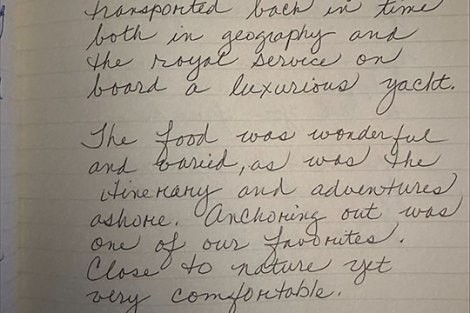 transported back in time
both in geography and
the royal service on
board a luxurious yacht.
The food was wonderful
and varied, as was the
itinerary and adventures
ashore. Anchoring out was
one of our favorites.
Close to nature yet
very comfortable.